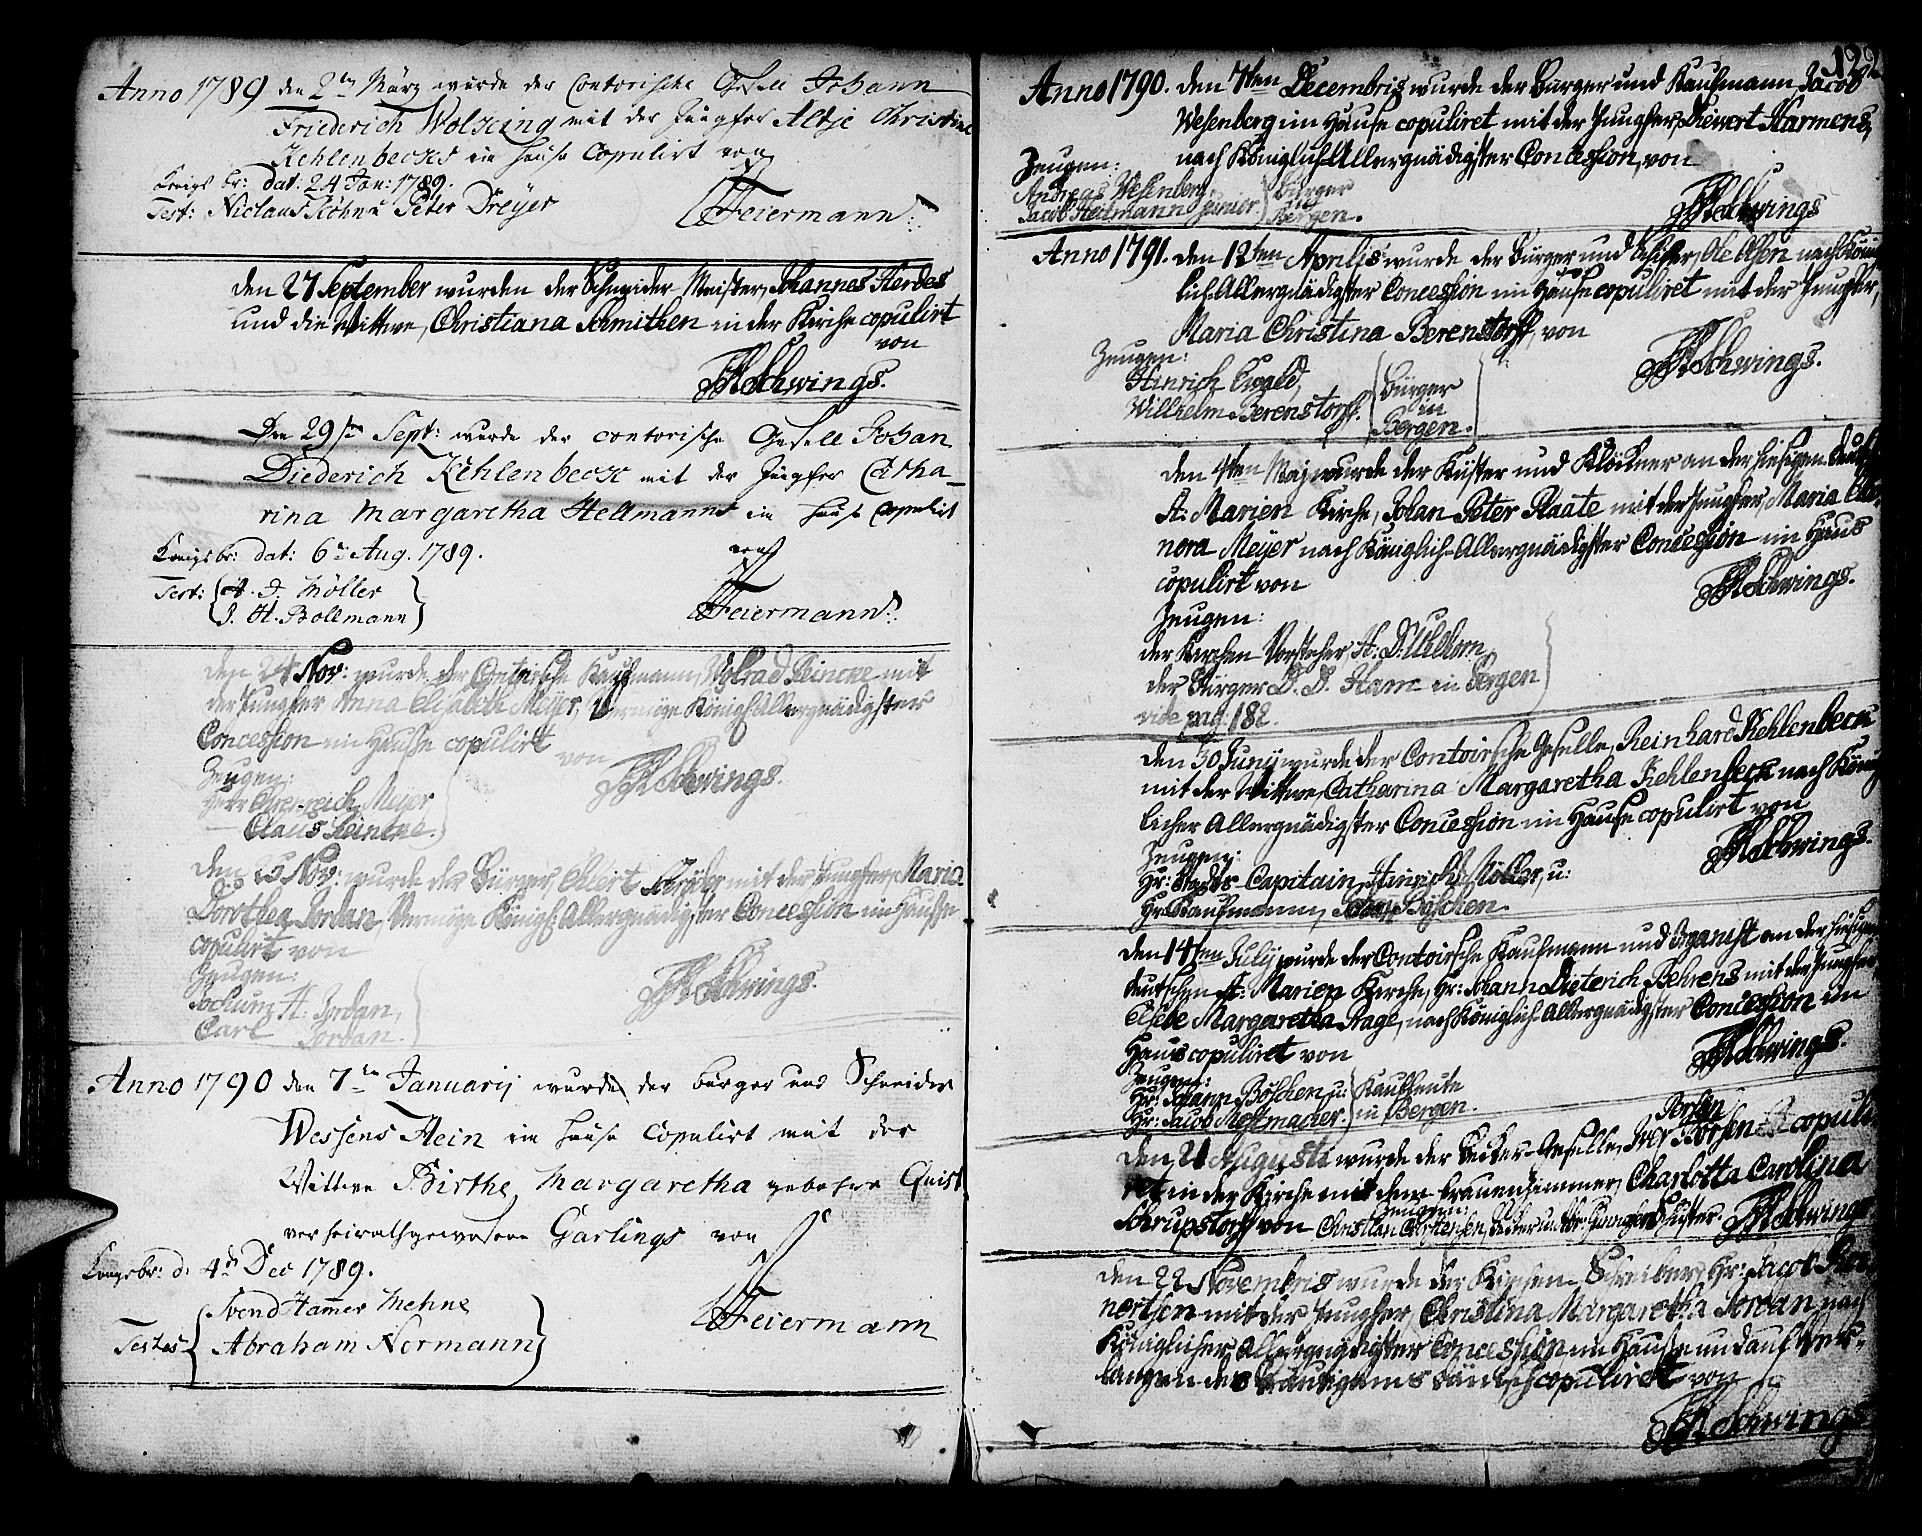 Anno 1789 den 2ten März wurde der Contorische Gesell Johann
Friederich Wolxing mit der Jungfer Altje Christine
Kehlenbecks im Hause Copulirt von
Königs br: dat: 24 Jan: 1789.
Test: Niclaus Röhn u Peter Dreyer
Feiermann
den 27 September wurden der Schneider Meister, Johannes Herdes
und die Wittwe, Christiana Schmithen in der Kirche copulirt
von
Schwings.
Den 29ten Sept: wurde der contorische Gesell Johan
Diederich Kehlenbeck mit der Jungfer Catha-
rina Margaretha Hellmanns im Hause Copulirt
Königs br: dat: 6 Aug. 1789.
von
Test: A. D. Möller
J. H. Bollmann
Feiermann
den 24 Nov: wurde der Contorische Kaufmann, Volrad Reincke mit
der Jungfer Anna Elisabeth Meyer, Vermöge Königl: Allergnädigster
Concession im Hausse copulirt
von
Zeugen:
Herr Ehrenreich Meyer
— Claus Reincke.
Schwings.
den 25 Nov: wurde der Bürger, Ehlert Schröder mit der Jungfer, Maria
Dorothea Jordan, Vermöge Königl: Allergnädigster Concession im Hausse
copulirt von
Zeugen:
Jochum H. Jordan,
Carl Jordan.
Schwings.
Anno 1790 den 7ten Januarij wurde der bürger und Schneider
Wessens Hein im Hause Copulirt mit der
Wittwe Birthe Margaretha gebohrne Quist
verheirathgewesene Garlings von
Kongsbr: d. 4ten Dec 1789.
Svend Hamer Mehne
Testes
Abraham Normann
Feiermann
122
Anno 1790. den 7ten Decembris wurde der Bürger und Kaufmann, Jacob
Wesenberg im Hause copuliret mit der Jungfer, Dievert Harmens,
nach Königlich-Allergnädigster Concession, von
Zeugen:
Andreas Wesenberg,
Jacob Heitmann Junior
Bürger
in
Bergen.
Schwings
Anno 1791. den 12ten Aprilis wurde der Bürger und Schiffer, Ole Olsen nach König-
lich-Allergnädigster Concession im Hause copuliret mit der Jungfer,
Maria Christina Berenstorff, von
Zeugen:
Hinrich Ewald,
Willhelm Berenstorff.
Bürger
in
Bergen.
Schwings.
den 4ten Maj wurde der Küster und Klöckner an der hiesigen Deutsch
St. Marien Kirche, Johan Peter Plaate mit der Jungfer, Maria Eleo-
nora Meyer nach Königlich-Allergnädigster Concession im Haus
copulirt von
Schwings.
Zeugen:
der Kirchen Vorsteher, H. D. Uhldom,
der Bürger D. D. Ham in Bergen
vide pag: 182.
den 30 Junij wurde der Contoirsche Geselle, Reinhard Kehlenbeck
mit der Wittwe, Catharina Margaretha Kehlenbeck nach König-
licher Allergnädigster Concession im Hause copulirt von
Zeugen:
Schwings.
Hr: Stadts-Capitain, Hinrich Möller, u:
Hr: Kaufmann, Johan Böschen.
den 14ten Julij wurde der Contoirsche Kaufmann und Organist an der hiesigen
deutschen St: Marien Kirche, Hr: Johann Dieterich Behrens mit der Jungfer,
Elsebe Margaretha Prage, nach Königlich-Allergnädigster Concession im
Haus copuliret von
Schwings.
Zeugen:
Hr: Johann Böschen, u:
Hr: Jacob Meltmacher.
Kaufleute
in Bergen.
Iversen
den 21 Augusti wurde der Becker-Geselle, Iver copuli-
ret in der Kirche mit dem Frauenzimmer, Charlotta Carolina
Schrupstorff von
Zeugen:
Christian Carstensen,
Schwings
den 22 Novembris wurde der Kirchen Schreiber, Hr: Jacob
nertsen mit der Jungfer, Christina Margaretha Jordan, nach
Königlicher Allergnädigster Concession, im Hausse und auf Ver-
langen des Bräutigams dänisch copuliret von
Schwings